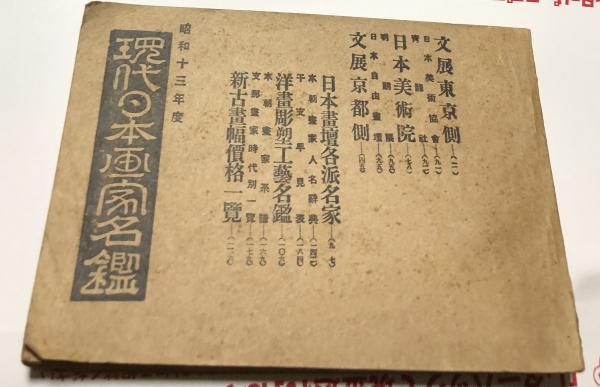 文展東京側
日本美術協會
青龍社
日本美術院
明朗展
日本自由畫壇
文展京都側
日本畫壇各派名家―(九七)
本朝畫家人名辭典
干支早見表―(一八四)
洋畫彫塑工藝名鑑―(一〇六)
本朝畫家系譜―(一六九)
支那畫家時代別一覽―(一七五)
新古畫幅價格一覽
昭和十三年度
現代日本画家名鑑